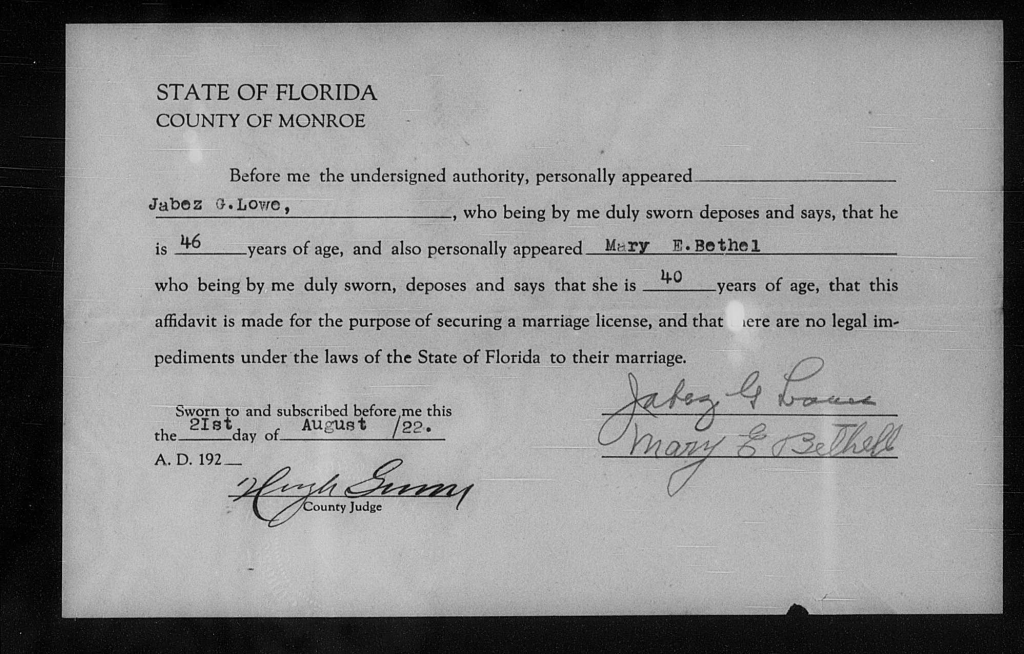 STATE OF FLORIDA
COUNTY OF MONROE
Before me the undersigned authority, personally appeared
Jabez G.Lowe, , who being by me duly sworn deposes and says, that he
is 46 years of age, and also personally appeared Mary E.Bethel
who being by me duly sworn, deposes and says that she is 40 years of age, that this
affidavit is made for the purpose of securing a marriage license, and that ere are no legal im-
pediments under the laws of the State of Florida to their marriage.
Jabez G Lowe
Sworn to and subscribed before me this
the 21st day of August /22.
Mary E Bethell
A. D. 192
Hugh Gunn
County Judge